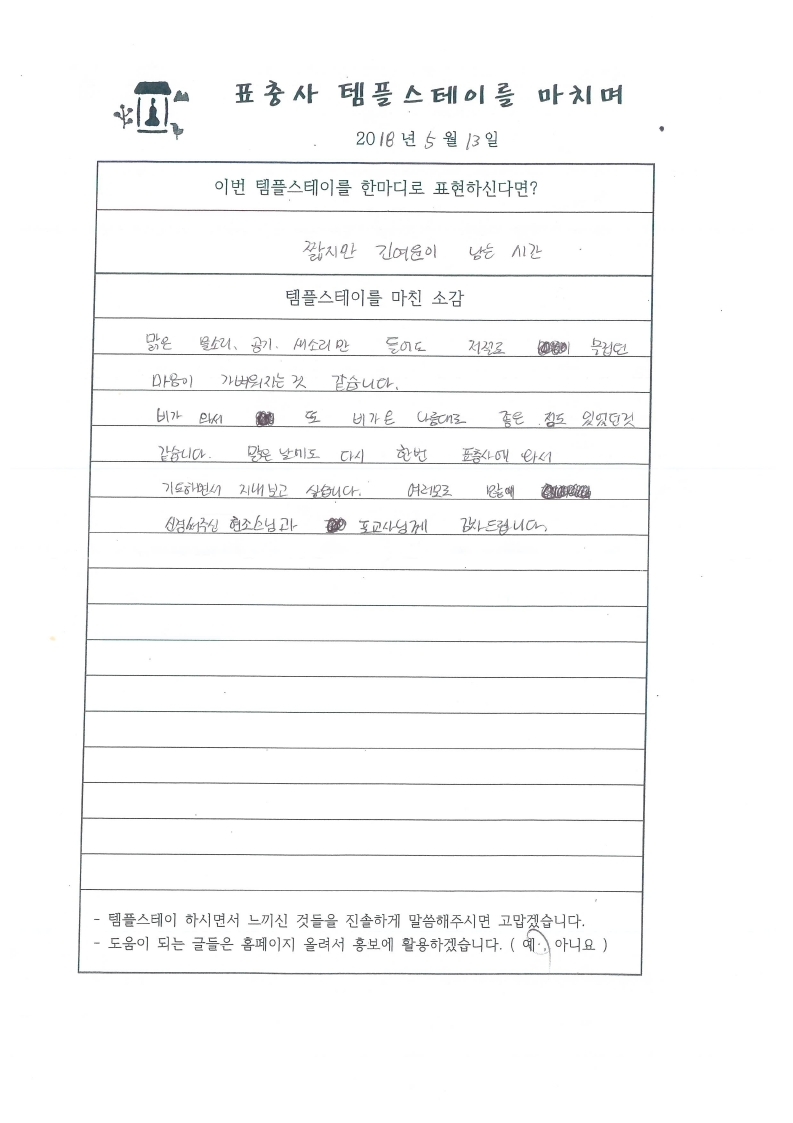 표충사 템플스테이를 마치며
2018년 5월 13일
이번 템플스테이를 한마디로 표현하신다면?
짧지만 긴여운이 남는 시간
템플스테이를 마친 소감
맑은 물소리, 공기, 새소리만 들어도 저절로 무겁던
마음이 가벼워지는 것 같습니다.
비가 와서 또 비가 나름대로 좋은 점도 있었던것
같습니다. 맑은 날에도 다시 한번 표충사에 와서
기도하면서 지내보고 싶습니다. 여러모로
신경써주신 현소스님과 포교사님께 감사드립니다.
- 템플스테이 하시면서 느끼신 것들을 진솔하게 말씀해주시면 고맙겠습니다.
- 도움이 되는 글들은 홈페이지 올려서 홍보에 활용하겠습니다. ( 예 , 아니요 )